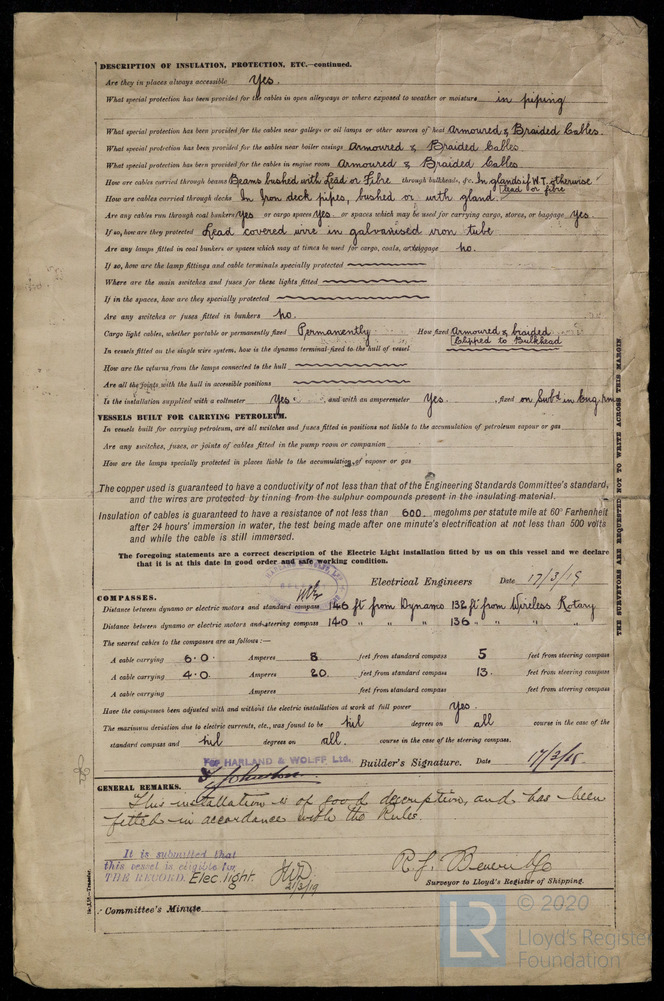 DESCRIPTION OF INSULATION, PROTECTION, ETC.—continued.
Are they in places always accessible Yes.
What special protection has been provided for the cables in open alleyways or where exposed to weather or moisture in piping
What special protection has been provided for the cables near galleys or oil lamps or other sources of heat Armoured & Braided Cables.
What special protection has been provided for the cables near boiler casings Armoured & Braided Cables
What special protection has been provided for the cables in engine room Armoured & Braided Cables
How are cables carried through beams Beams bushed with Lead or Fibre through bulkheads, &c. In glands if W.T. otherwise
Lead or fibre
How are cables carried through decks In Iron deck pipes, bushed or with gland.
Are any cables run through coal bunkers Yes or cargo spaces Yes or spaces which may be used for carrying cargo, stores, or baggage Yes.
If so, how are they protected Lead covered wire in galvanised iron tube
Are any lamps fitted in coal bunkers or spaces which may at times be used for cargo, coals, or baggage No.
If so, how are the lamp fittings and cable terminals specially protected
Where are the main switches and fuses for these lights fitted
If in the spaces, how are they specially protected
Are any switches or fuses fitted in bunkers No.
Cargo light cables, whether portable or permanently fixed Permanently How fixed Armoured & braided
Clipped to Bulkhead
In vessels fitted on the single wire system, how is the dynamo terminal fixed to the hull of vessel
How are the returns from the lamps connected to the hull
Are all the joints with the hull in accessible positions
Is the installation supplied with a voltmeter Yes and with an amperemeter Yes. , fixed on Swbd in Eng. Rm
VESSELS BUILT FOR CARRYING PETROLEUM.
In vessels built for carrying petroleum, are all switches and fuses fitted in positions not liable to the accumulation of petroleum vapour or gas
Are any switches, fuses, or joints of cables fitted in the pump room or companion
How are the lamps specially protected in places liable to the accumulation of vapour or gas
The copper used is guaranteed to have a conductivity of not less than that of the Engineering Standards Committee's standard,
and the wires are protected by tinning from the sulphur compounds present in the insulating material.
Insulation of cables is guaranteed to have a resistance of not less than 600. megohms per statute mile at 60° Farhenheit
after 24 hours' immersion in water, the test being made after one minute's electrification at not less than 500 volts
and while the cable is still immersed.
The foregoing statements are a correct description of the Electric Light installation fitted by us on this vessel and we declare
that it is at this date in good order and safe working condition.
Electrical Engineers Date 17/3/19
COMPASSES.
Distance between dynamo or electric motors and standard compass 146 ft from Dynamo 132 ft from Wireless Rotary
Distance between dynamo or electric motors and steering compass 140 " " " 136 " " " "
The nearest cables to the compasses are as follows:—
A cable carrying 6.0 Amperes 8 feet from standard compass 5 feet from steering compass
A cable carrying 4.0 Amperes 20 feet from standard compass 13. feet from steering compass
A cable carrying Amperes feet from standard compass feet from steering compass
Have the compasses been adjusted with and without the electric installation at work at full power Yes.
The maximum deviation due to electric currents, etc., was found to be Nil degrees on all course in the case of the
standard compass and Nil degrees on all. course in the case of the steering compass.
For HARLAND & WOLFF, Ltd. Builder's Signature. Date 17/3/19
GENERAL REMARKS.
This installation is of good description, and has been
fitted in accordance with the Rules.
It is submitted that
this vessel is eligible for
THE RECORD. Elec. light. 21/3/19
Surveyor to Lloyd's Register of Shipping.
Committee's Minute
THE SURVEYORS ARE REQUESTED NOT TO WRITE ACROSS THIS MARGIN
LR © 2020
Lloyd's Register
Foundation